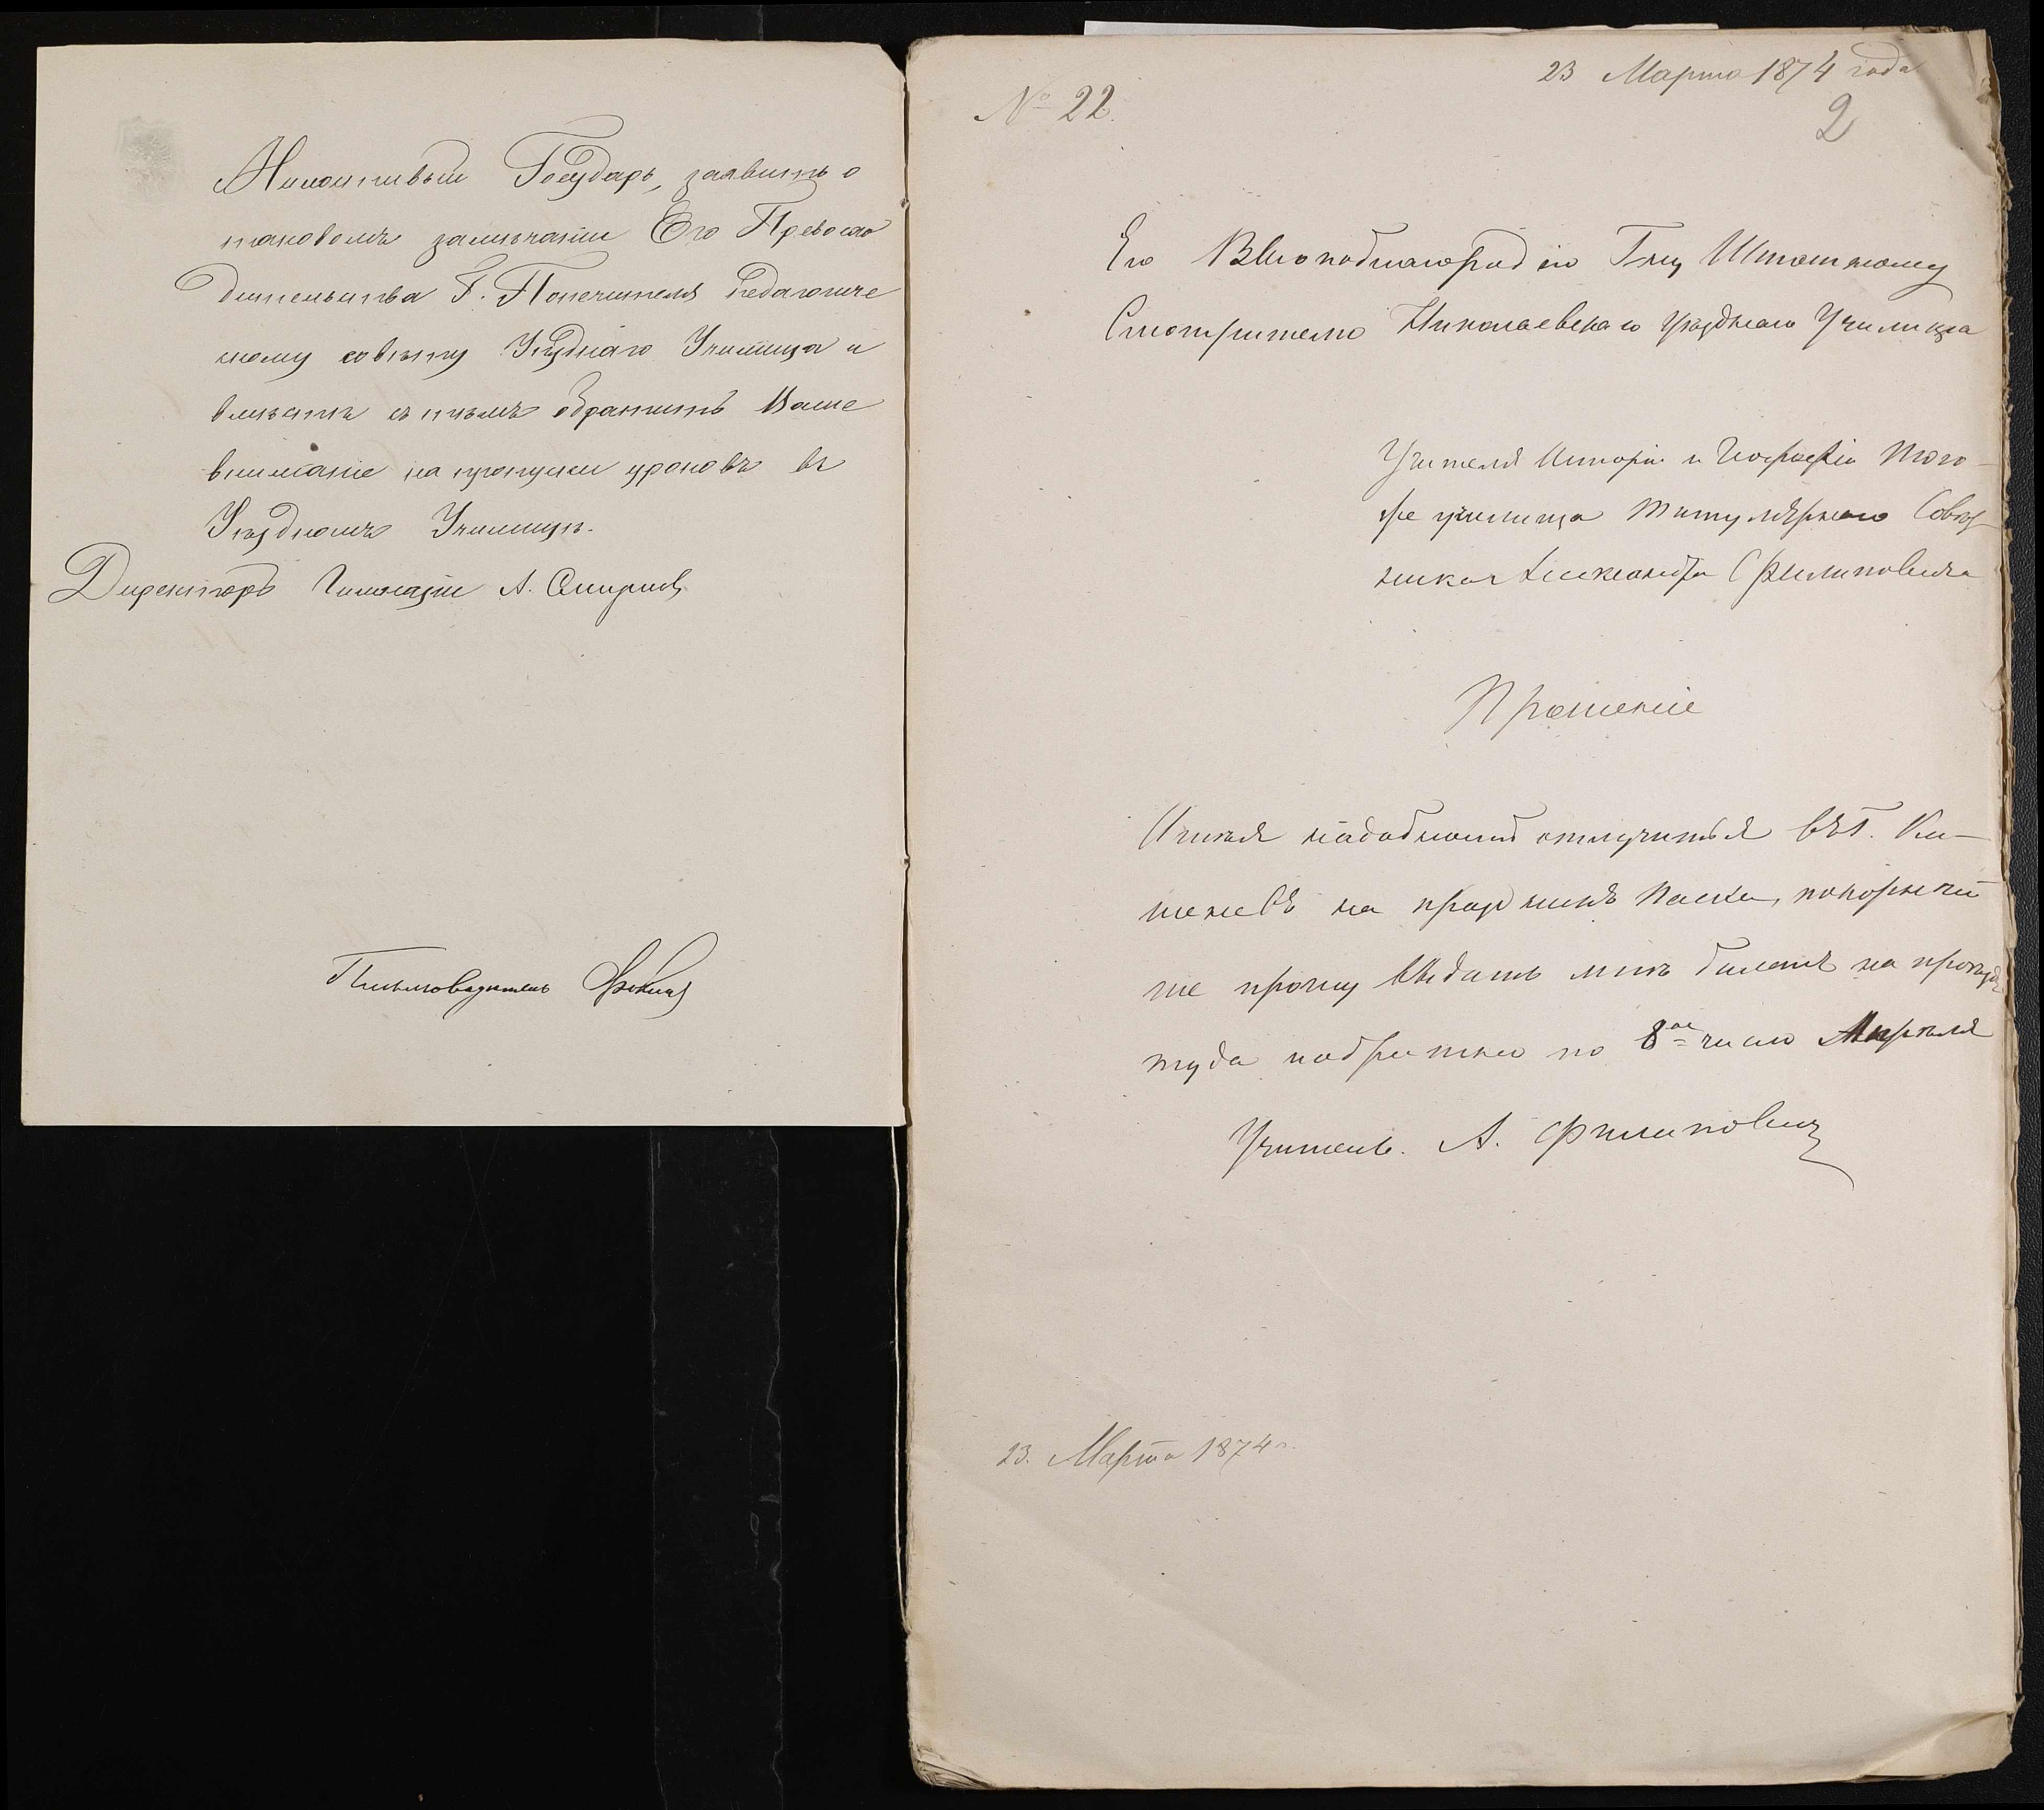 Милостивый Государь, заявить о
таковомъ замѣчаніи Его Превосхо
дительства Г. Попечителя педагогиче
скому совѣту Уѣзднаго Училища и
вмѣстѣ съ тѣмъ обратить Ваше
вниманіе на пропуски уроковъ въ
Уѣздномъ Училищѣ.
Директоръ Гимназіи А. Смирновъ
Письмоводитель
№ 22.
23 Марта 1874 года
2
Его Высокоблагородію Г-ну Штатному
Смотрителю Николаевскаго Уѣзднаго Училища
Учителя Исторіи и Географіи того
же училища Титулярнаго Совѣт
ника Александра Филиповича
Прошеніе
Имѣя надобность отлучиться въ г. Ки-
шеневъ на праздникъ Пасхи, покорнѣй
ше прошу выдать мнѣ билетъ на проѣздъ
туда и обратно по 8ое число Апрѣля
Учитель. А. Филиповичъ
23. Марта 1874 г.